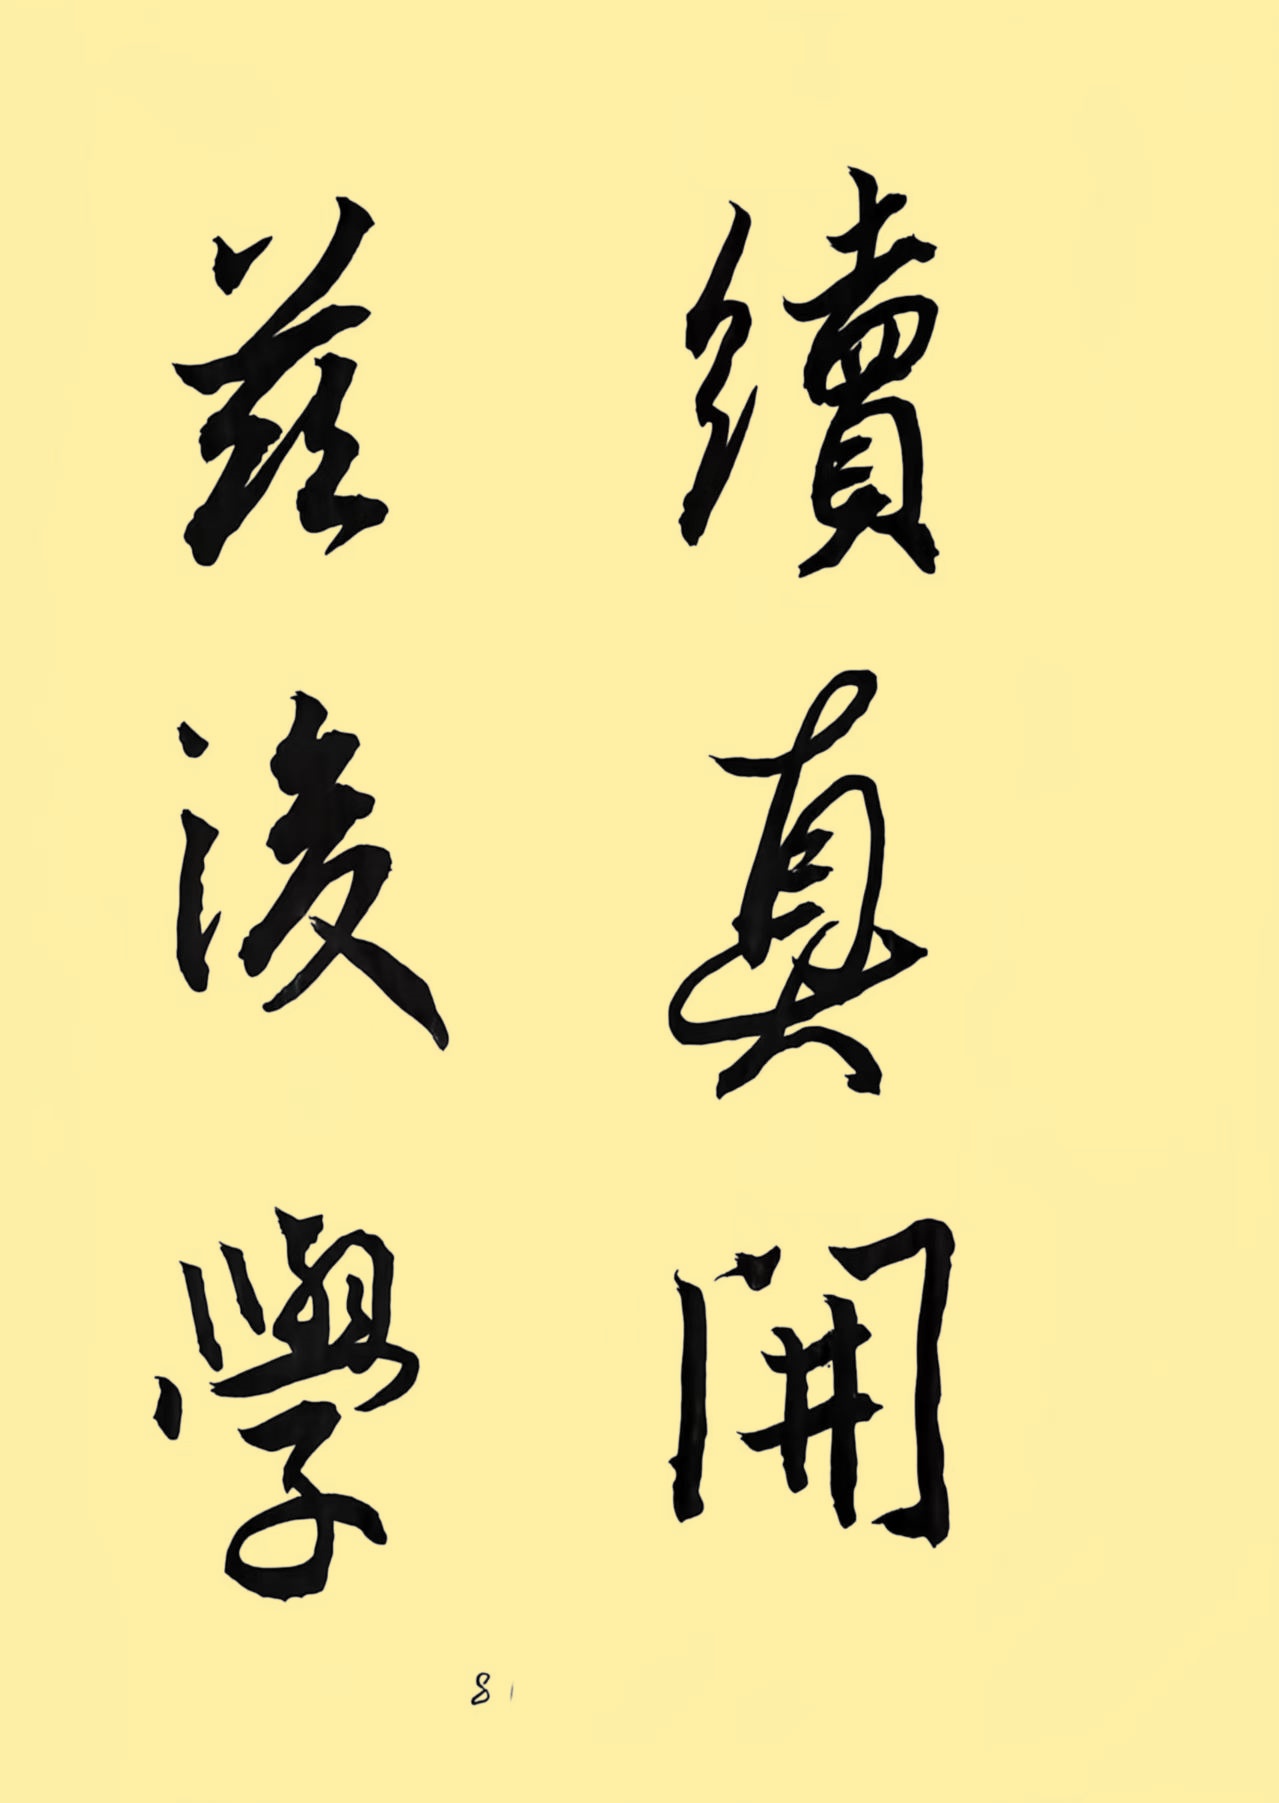 續真開
茲後學
81